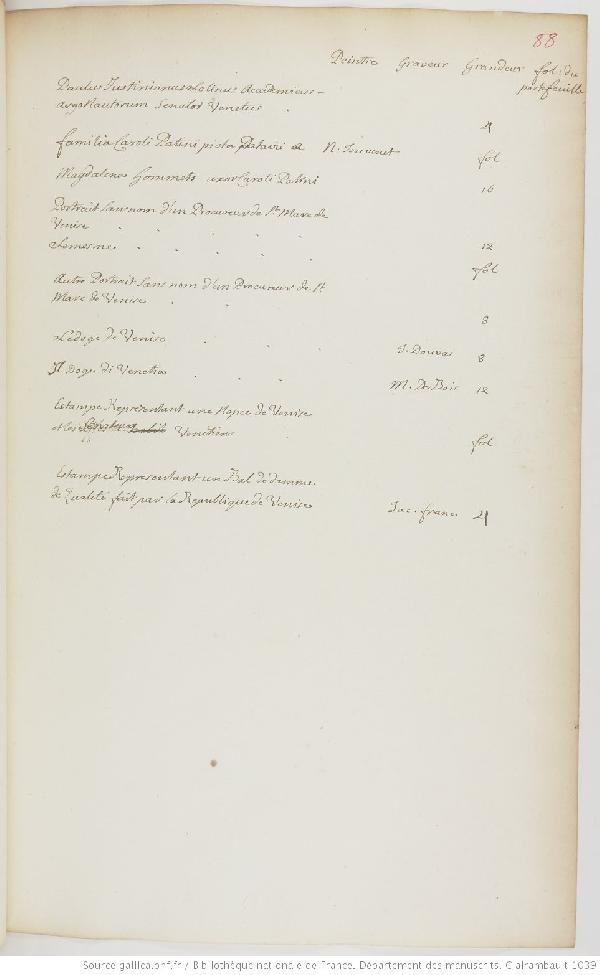 88
Peintre Graveur Grandeur fol. du
portefeuille
Paulus Justininus Lolinus Academicus
Argonautarum Senator Venetus .
4
familia Caroli Patini picta Patavii a N. Jouvenet
fol
Magdalena Hommets uxor Caroli Patini
16
Portrait sans nom d'un Procureur de St Marc de
Venise . . . .
12
Le mesme . . . . .
fol
Autre Portrait sans nom d'un Procureur de St
Marc de Venise . .
8
Le doge de Venise . . . J. Douvas 8
Il Doge di Venetia . . . M. De Bois 12
Estampe Representant une Nopce de Venise
et les Senateur Venitien
fol
Estampe Representant un Bal de dames
de Qualité fait par la Republique de Venise Jac. franc. 4
Source gallica.bnf.fr / Bibliothèque nationale de France. Département des manuscrits. Clairambault 1039